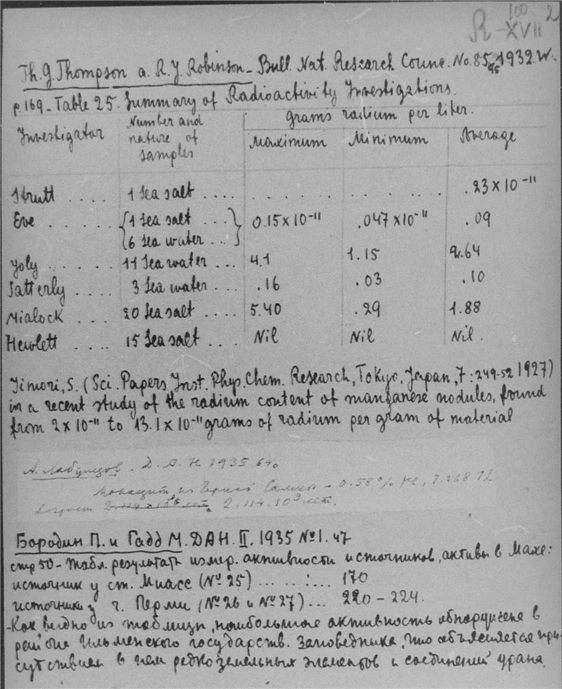 R-XVII 2
Th. G. Thompson a. R. J. Robinson_ Bull. Nat. Research Counc. No. 85, 1932. W.
p 169_ Table 25. Summary of Radioactivity Investigations.
Investigator Number and nature of samples grams radium per liter.
Maximum Minimum Average
Strutt 1 Sea salt .... . . . . . . . . . . .23×10⁻¹¹
Eve ...... {1 Sea salt ... 0.15×10⁻¹¹ .047×10⁻¹¹ .09
6 Sea water ..}
Joly ...... 11 Sea water ... 4.1 1.15 2.64
Satterly .... 3 Sea water ... .16 .03 .10
Mialock .... 20 Sea salt .... 5.40 .29 1.88
Hewlett 15 Sea salt .... Nil Nil Nil.
Iimori, S. (Sci. Papers Inst. Phys. Chem. Research, Tokyo, Japan, 7: 249-52 1927)
in a recent study of the radium content of manganese nodules, found
from 2×10⁻¹¹ to 13.1×10⁻¹¹ grams of radium per gram of material
А. Лабунцов. Д.А.Н 1935
Монацит из Черной - 0.58%
Возраст 2.114.10³ лет.
Бородин П. и Гадд М. ДАН. II. 1935 №1. 47
стр 50- табл. результат измер. активности источников, активы в Махе:
источник у ст. Миасс (№ 25) ... .: ... 170
источники у г. Перми (№ 26 и № 27) ... 220 - 224.
-Как видно из таблицы, наибольшая активность обнаружена в
районе Ильменского государств. Заповедника, что объясняется при-
сутствием в нем редкоземельных элементов и соединений урана.